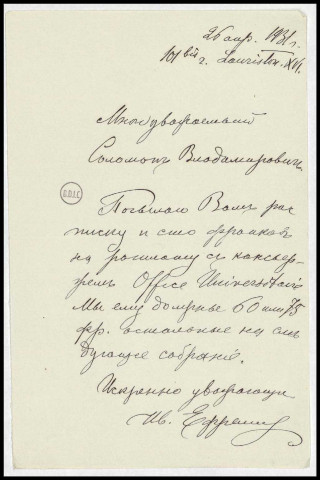 26 апр. 1931 г.
101 bis r. Lauriston. XVI.
Многоуважаемый
Соломон Владимирович,
B.D.I.C
Посылаю Вам рас
писку и сто франков
на расплату с
Office Universitaire
Мы ему должны 60 или 75
фр. остальные на сле
дующее собрание.
Искренно уважающий
Ив. Ефремов